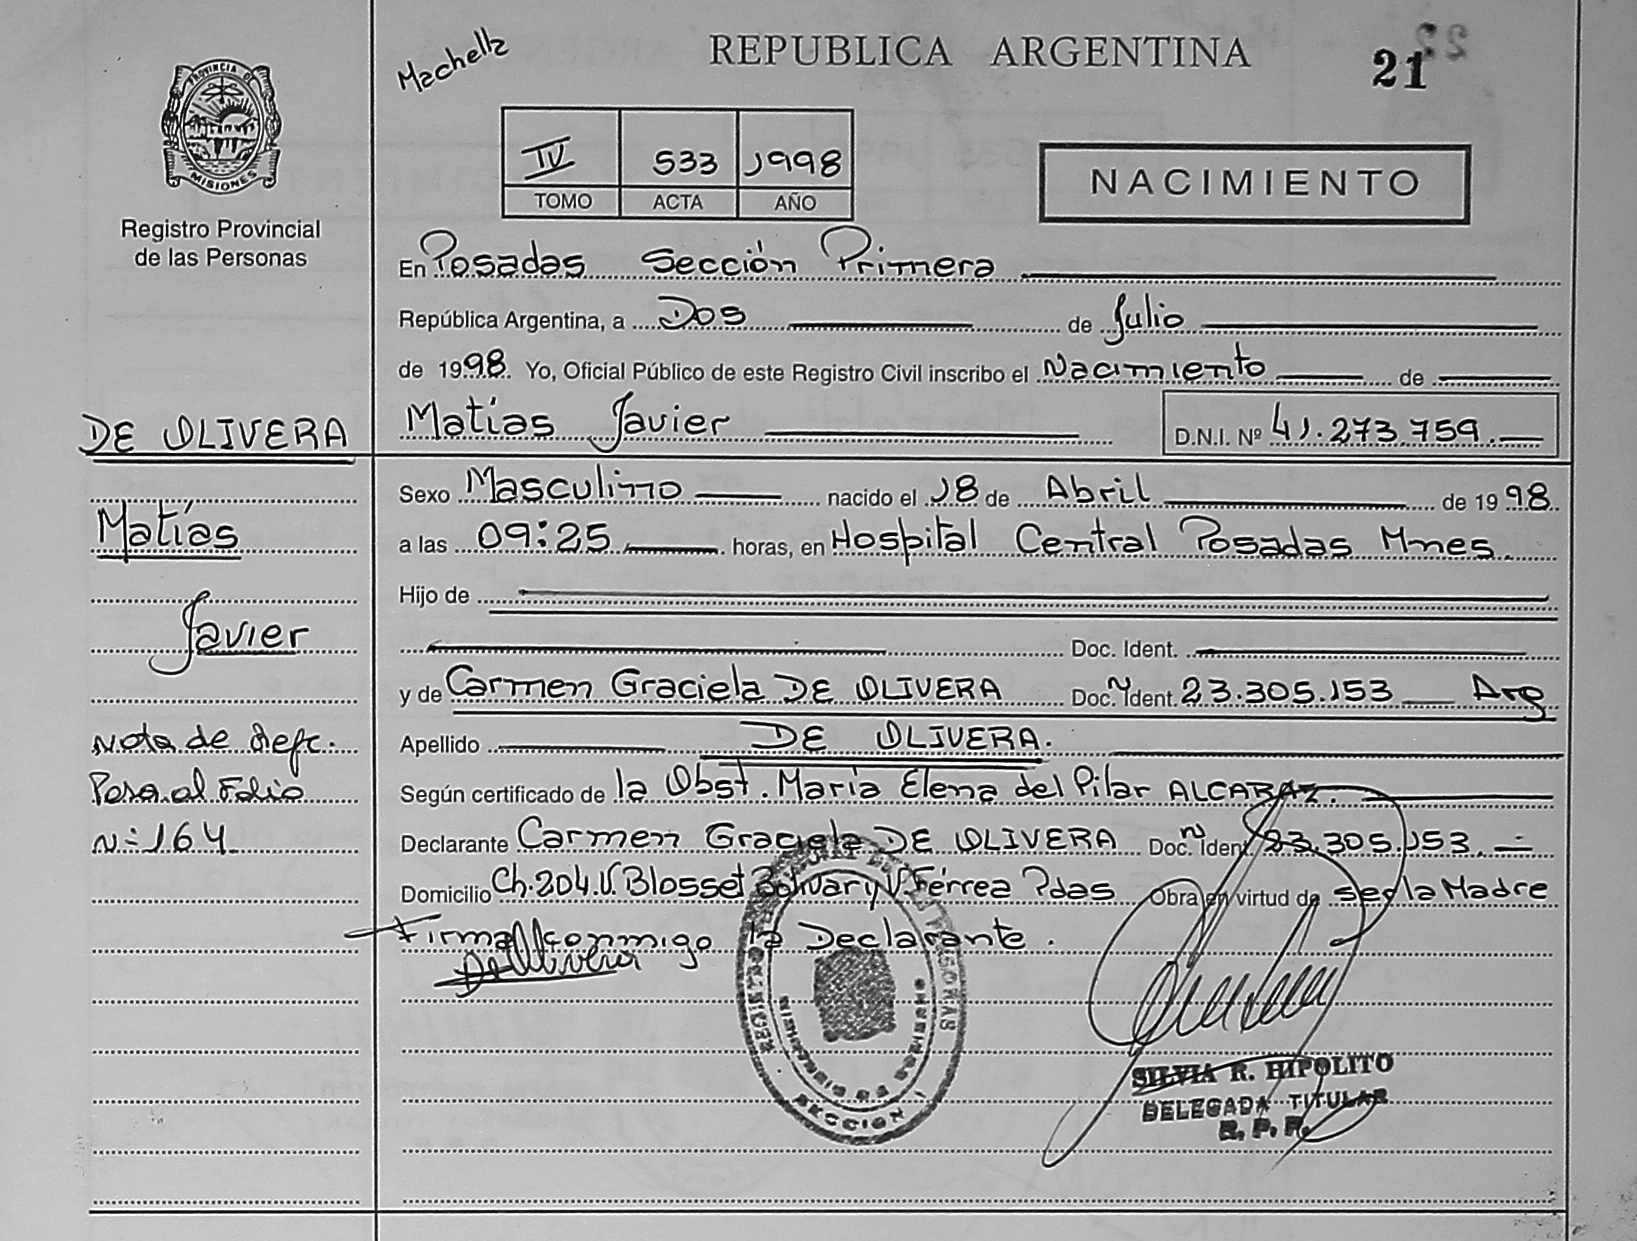 Machella
REPUBLICA ARGENTINA
21
PROVINCIA DE MISIONES
Registro Provincial
de las Personas
IV 533 1998
TOMO ACTA AÑO
NACIMIENTO
En Posadas Sección Primera
República Argentina, a Dos de Julio
de 1998. Yo, Oficial Público de este Registro Civil inscribo el Nacimiento de
Matías Javier D.N.I. Nº 41.273.759.
Sexo Masculino nacido el 18 de Abril de 1998.
a las 09:25 horas, en Hospital Central Posadas Mnes.
Hijo de
Doc. Ident.
y de Carmen Graciela DE OLIVERA Doc. Ident. 23.305.153 Arg
Apellido DE OLIVERA.
Según certificado de la Obst. María Elena del Pilar ALCARAZ.
Declarante Carmen Graciela DE OLIVERA Doc. Ident. 23.305.153.
Domicilio Ch.204.V.Blosset Bolívar y V.Férrea Pdas Obra en virtud de ser la Madre
Firma conmigo la Declarante.
De Olivera
DE OLIVERA
Matías
Javier
Nota de Refc.
Pasa al Folio
Nº 164
SECCION I
SILVIA R. HIPOLITO
DELEGADA TITULAR
R. P. P.